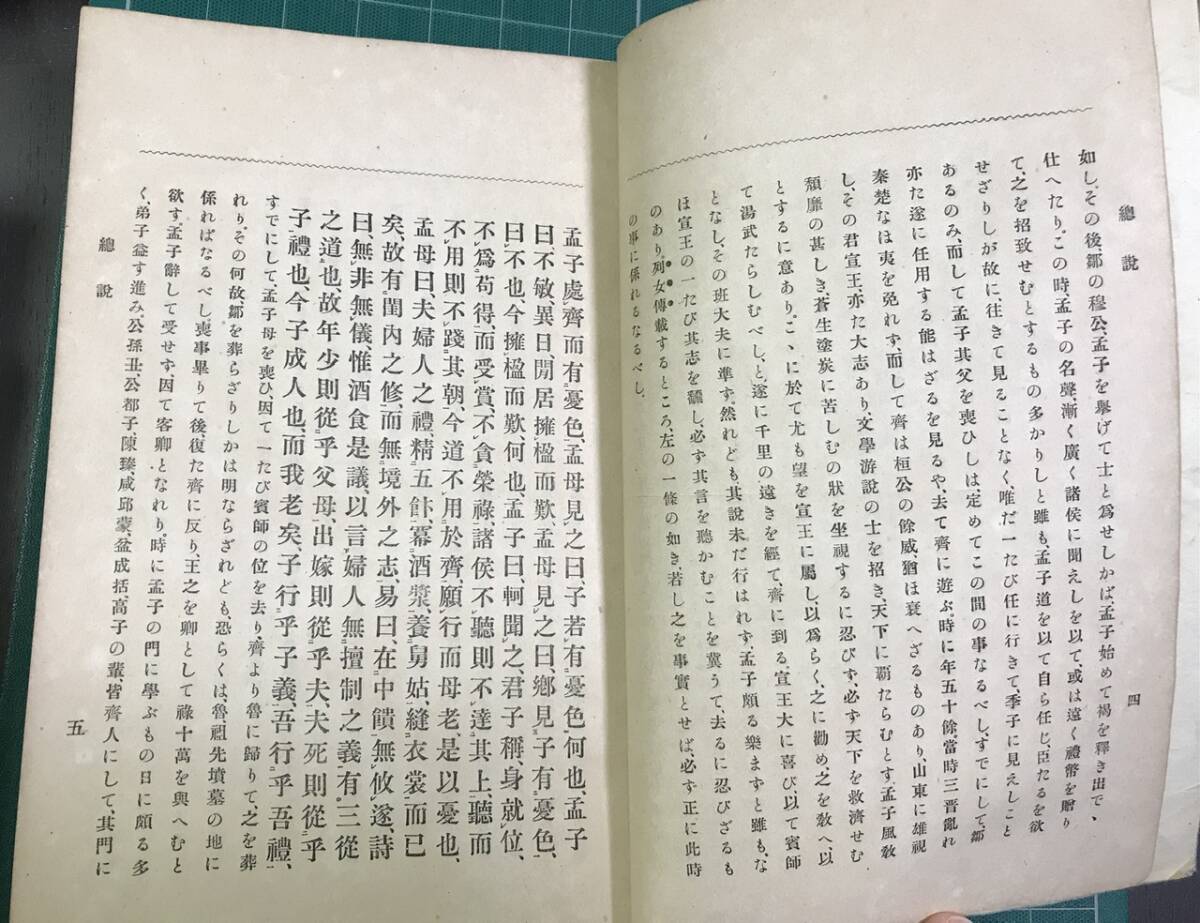 總說
四
如し、その後、鄒の穆公、孟子を擧げて士と爲せしかば孟子始めて褐を釋き出で、
仕へたり。この時孟子の名聲、漸く廣く諸侯に聞えしを以て、或は遠く禮幣を贈り
て、之を招致せむとするもの多かりしと雖も、孟子道を以て自ら任じ、臣たるを欲
せざりしが故に、往きて見ることなく、唯だ一たび任に行きて、季子に見えしこと
あるのみ、而して孟子其父を喪ひしは定めてこの間の事なるべし、すでにして、鄒
亦た遂に任用する能はざるを見るや、去て齊に遊ぶ、時に年五十餘、當時三晋亂れ
秦楚なほ夷を免れず、而して齊は桓公の餘威、猶ほ衰へざるものあり、山東に雄視
し、その君宣王、亦た大志あり、文學游說の士を招き、天下に覇たらむとす、孟子風敎
頽廉の甚しき、蒼生塗炭に苦しむの狀を坐視するに忍びず、必ず天下を救濟せむ
とするに意あり。こゝに於て尤も望を宣王に屬し、以爲らく之に勸め、之を敎へ、以
て湯武たらしむべし、と、遂に千里の遠きを經て、齊に到る、宣王大に喜び、以て賓師
となし、その班大夫に準ず、然れども、其說未だ行はれず、孟子頗る樂まずと雖も、な
ほ宣王の一たび其志を飜し、必ず其言を聽かむことを冀うて、去るに忍びざるも
のあり。列女傳載するところ、左の一條の如き、若し之を事實とせば、必ず正に此時
の事に係れるなるべし。
孟子處齊而有憂色、孟母見之曰、子若有憂色何也、孟子
曰、不敏、異日、閒居擁楹而歎、孟母見之曰、鄕見子有憂色、
曰、不也、今擁楹而歎、何也、孟子曰、軻聞之、君子稱身就位、
不爲苟得、而受賞、不貪榮祿、諸侯不聽則不達其上、聽而
不用則不踐其朝、今道不用於齊、願行而母老、是以憂也、
孟母曰、夫婦人之禮、精五飰、冪酒漿、養舅姑、縫衣裳而已
矣、故有閨內之修、而無境外之志、易曰、在中饋無攸遂、詩
曰、無非無儀、惟酒食是議、以言婦人無擅制之義、有三從
之道也、故年少則從乎父母、出嫁則從乎夫、夫死則從乎
子、禮也、今子成人也、而我老矣、子行乎子義、吾行乎吾禮、
すでにして孟子母を喪ひ、因て一たび賓師の位を去り、齊より魯に歸りて、之を葬
れり。その何故、鄒を葬らざりしかは明ならざれども、恐らくは、魯、祖先墳墓の地に
係ればなるべし、喪事畢りて後、復た齊に反り、王之を卿として祿十萬を與へむと
欲す。孟子辭して受せず、因て客卿となれり。時に孟子の門に學ぶもの日に頗る多
く、弟子益す進み、公孫丑、公都子、陳臻、咸邱蒙、盆成括、高子の輩、皆齊人にして、其門に
總說
五